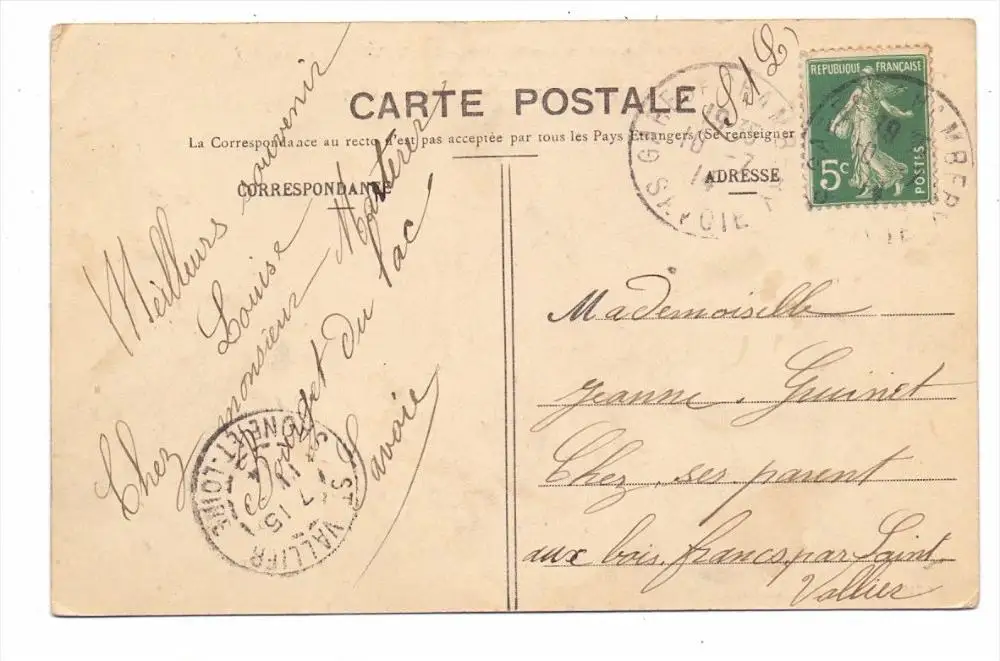 CARTE POSTALE
La Correspondance au recto n'est pas acceptée par tous les Pays Étrangers (Se renseigner
CORRESPONDANCE
ADRESSE
(S1 L)
REPUBLIQUE FRANÇAISE
5c
POSTES
GARE DE CHAMBERY
SAVOIE
Meilleurs souvenir
Louise
Chez monsieur
Bourget du lac
Savoie
ST VALLIER
SAONE-ET-LOIRE
Mademoiselle
Jeanne Guinet
Chez ses parent
aux bois francs par Saint
Vallier